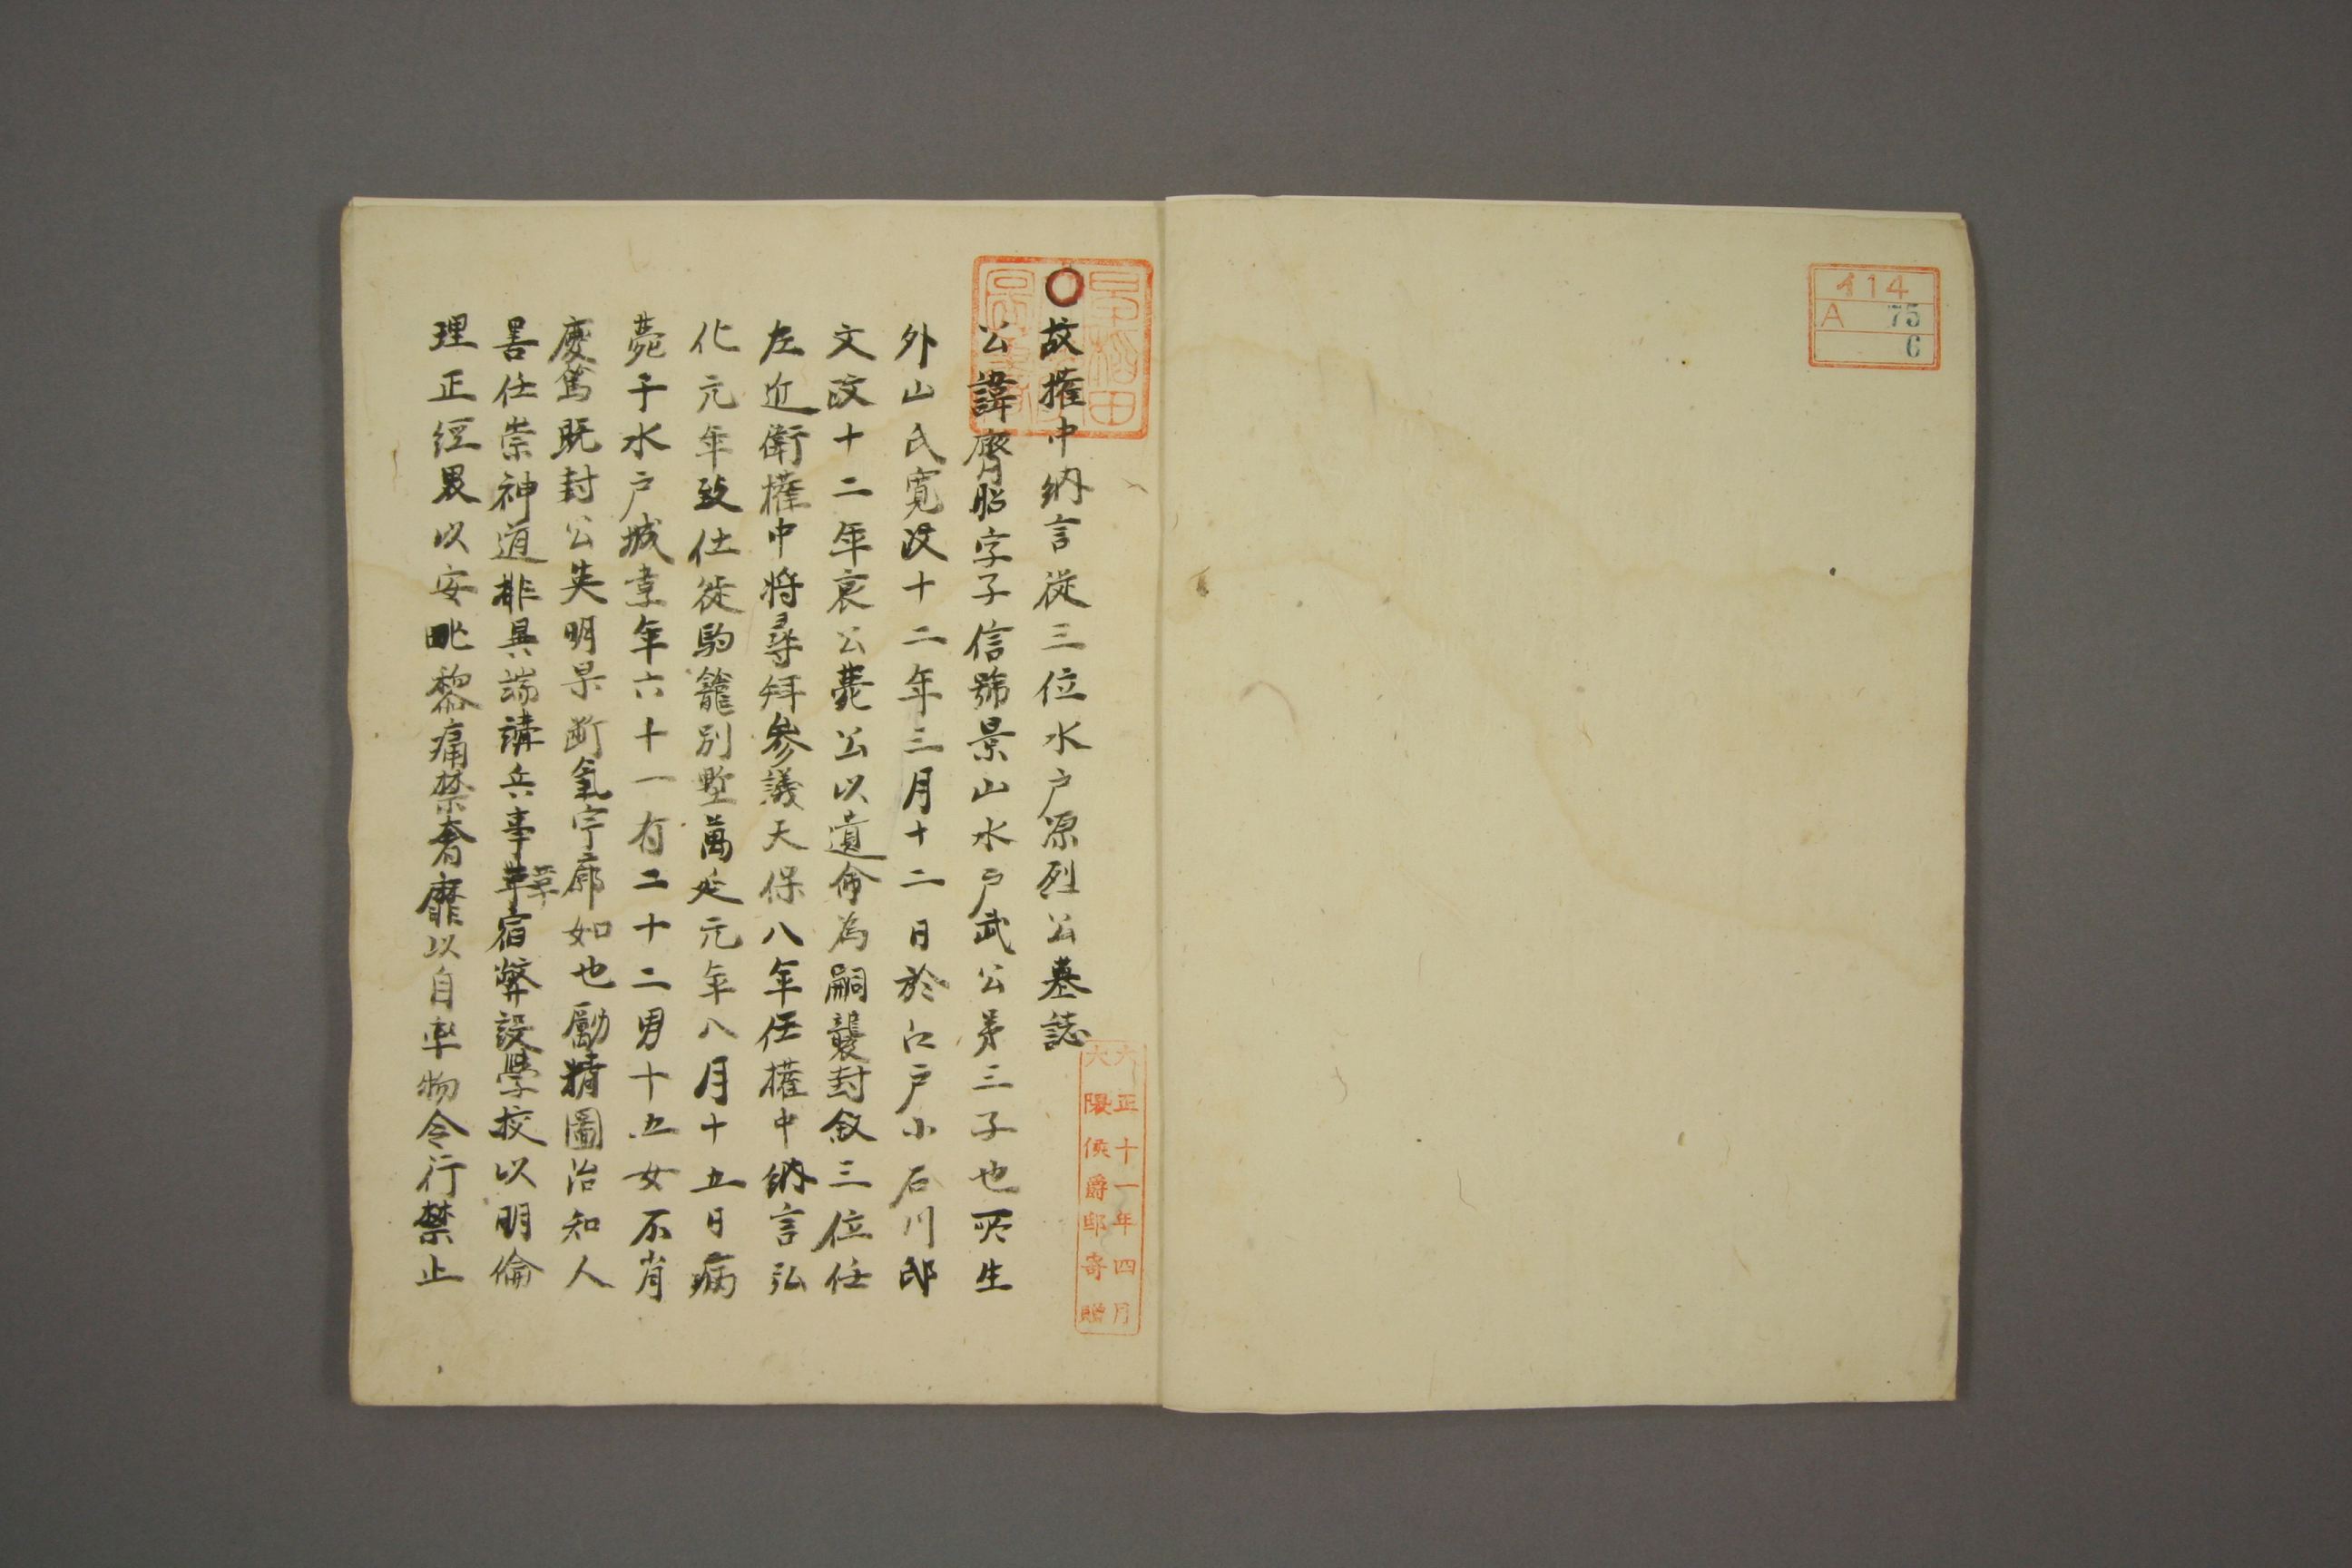 414
A 75
6
○故権中納言従三位水户源烈公墓誌
公諱齊昭字子信號景山水戶武公第三子也所生
外山氏寛政十二年三月十二日於江戸小石川邸
文政十二年哀公薨公以遺命為嗣襲封叙三位任
左近衛権中将尋拜參議天保八年任権中納言弘
化元年致仕徙駒籠別墅萬延元年八月十五日病
薨于水戸城享年六十一有二十二男十五女不肖
慶篤既封公英明果断氣宇廓如也勵精圖治知人
善任崇神道排異端講兵事革宿弊設學校以明倫
理正經界以安毗黎痛禁奢靡以自率物令行禁止
大正十一年四月
大隈侯爵邸寄贈